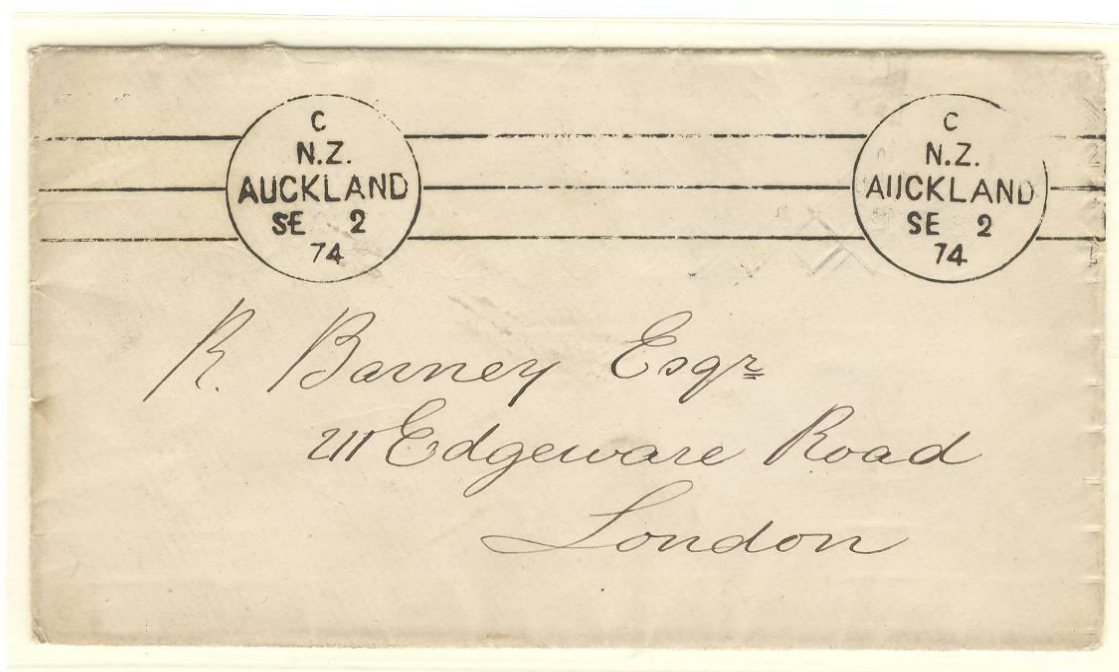 C
N.Z.
AUCKLAND
SE 2
74
C
N.Z.
AUCKLAND
SE 2
74
R. Barney Esqr
211 Edgeware Road
London